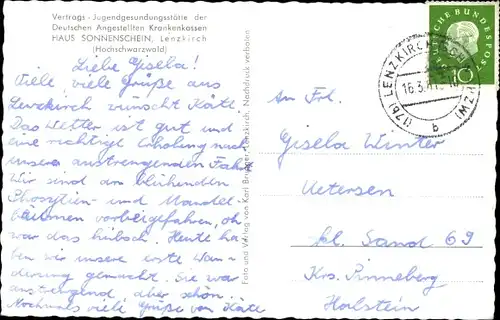 Vertrags - Jugendgesundungsstätte der
Deutschen Angestellten Krankenkassen
HAUS SONNENSCHEIN, Lenzkirch
(Hochschwarzwald)
Liebe Gisela!
Viele, viele Grüße aus
Lenzkirch wünscht Käte
Das Wetter ist gut und
eine richtige Erholung nach
unsere anstrengenden Fahrt
Wir sind an blühenden
und Mandel-
bäumen vorbeigefahren, oh
war das hübsch. Heute ha-
ben wir unsere erste Wan-
derung gemacht. Sie war
anstrengend, aber schön.
Nochmals viele Grüße von Käte
Foto und Verlag von Karl Lenzkirch, Nachdruck verboten
DEUTSCHE BUNDESPOST
10
(17b) LENZKIRCH
16.3.
b
An Frl.
Gisela Winter
Uetersen
kl. Sand 69
Krs. Pinneberg
Holstein